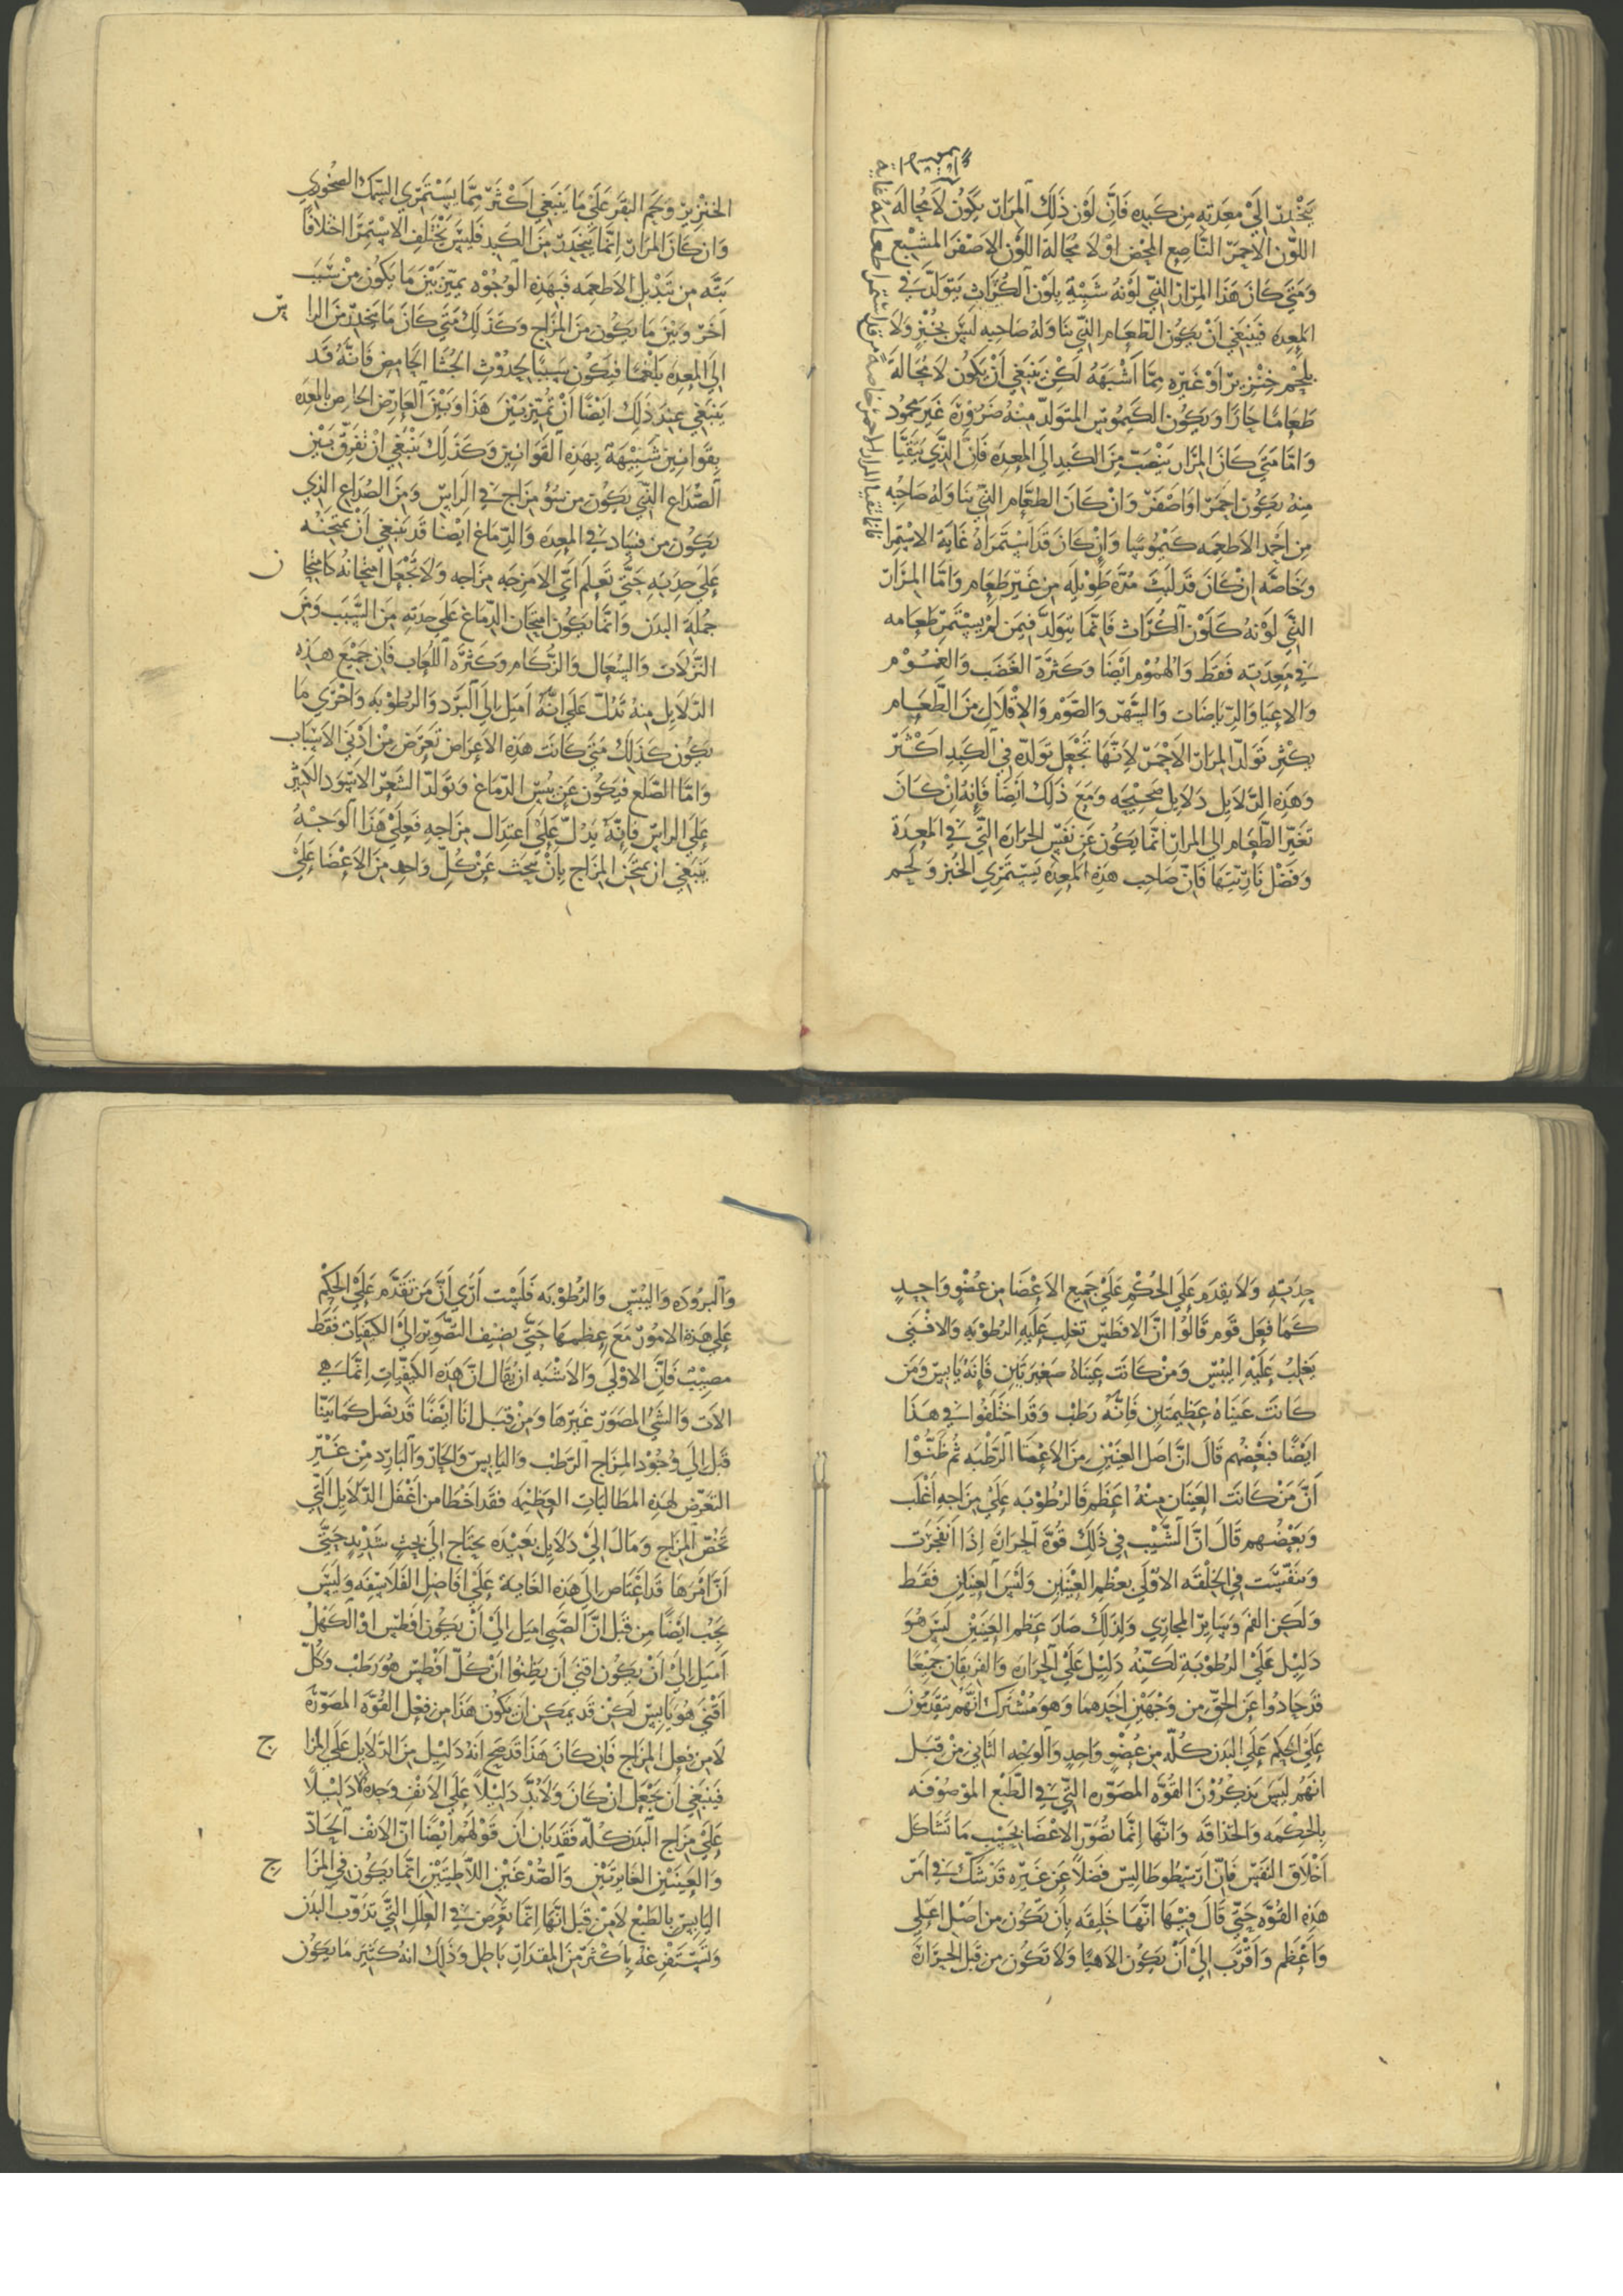 ينحدر الي معدته من كبده فان لون ذلك المرار يكون لا محاله
اللون الاحمر الناصع المحض او لا محالة اللون الاصفر المشبع
ومتي كان هذا المرار الذي لونه شبيه بلون الكراث يتولد في
المعده فينبغي ان يكون الطعام الذي يناوله صاحبه ليس بخبز ولا
بلحم خنزير او غيره مما اشبهه لكن ينبغي ان يكون لا محالة
طعاما حارا ويكون الكيموس المتولد منه ضرورة غير محمود
واما متي كان المرار ينصب من الكبد الي المعده فان الذي يتقيا
منه يكون احمر او اصفر وان كان الطعام الذي يناوله صاحبه
من احمد الاطعمه كيموسا وان كان قد استمراه غاية الاستمرا
وخاصه ان كان قد لبث مدة طويله من غير طعام واما المرار
الذي لونه كلون الكراث فانما يتولد فيمن لم يستمر طعامه
في معدته فقط والهموم ايضا وكثرة الغضب والغموم
والاعيا والرياضات والسهر والصوم والاقلال من الطعام
يكثر تولد المرار الاحمر لانها تجعل تولده في الكبد اكثر
وهذه الدلايل دلايل صحيحه ومع ذلك ايضا فانه ان كان
تغير الطعام الي المرار انما يكون عن نفس الحرارة التي في المعدة
وفضل ناريتها فان صاحب هذه المعده يستمري الخبز ولحم
الخنزير ولحم البقر علي ما ينبغي اكثر مما يستمري السمك الصخوري
وان كان المرار انما ينحدر من الكبد فليس يختلف الاستمرا اختلافا
بته من تبديل الاطعمه فبهذه الوجوه يميز بين ما يكون من سبب
اخر وبين ما يكون من المزاج وكذلك متي كان ما ينحدر من الرا س
الي المعده بلغما فيكون سببا لحدوث الجشا الحامض فانه قد
ينبغي عند ذلك ايضا ان تميز بين هذا وبين العارض الخاص بالمعده
بقوانين شبيهة بهذه القوانين وكذلك ينبغي ان تفرق بين
الصداع الذي يكون من سوء مزاج في الراس ومن الصداع الذي
يكون من فساد في المعده والدماغ ايضا قد ينبغي ان يمتحنه
علي حدته حتي تعلم اي الامزجه مزاجه ولا تجعل امتحانه كامتحا ن
جملة البدن وانما يكون امتحان الدماغ علي حدته من الشيب ومن
النزلات والسعال والزكام وكثره اللعاب فان جميع هذه
الدلايل منه تدل علي انه اميل الي البرد والرطوبه واحري ما
يكون كذلك متي كانت هذه الاعراض تعرض من ادني الاسباب
واما الصلع فيكون عن يبس الدماغ وتولد الشعر الاسود الكثير
علي الراس فانه يدل علي اعتدال مزاجه فعلي هذا الوجه
ينبغي ان يمتحن المزاج بان يبحث عن كل واحد من الاعضا علي
حدته ولا يقدم علي الحكم علي جميع الاعضا من عضو واحد
كما فعل قوم قالوا ان الافطس تغلب عليه الرطوبه والاقني
يغلب عليه اليبس ومن كانت عيناه صغيرتين فانه يابس ومن
كانت عيناه عظيمتين فانه رطب وقد اختلفوا في هذا
ايضا فبعضهم قال ان اصل العينين من الاعضا الرطبه ثم ظنوا
ان من كانت العينان منه اعظم فالرطوبه علي مزاجه اغلب
وبعضهم قال ان السبب في ذلك قوة الحرارة اذا انفجرت
وتنفست في الخلقه الاولي بعظم العينين وليس العينان فقط
ولكن الفم وسائر المجاري ولذلك صار عظم العينين ليس هو
دليل علي الرطوبة لكنه دليل علي الحرارة والفريقان جميعا
قد حادوا عن الحق من وجهين احدهما وهو مشترك انهم يقدمون
علي الحكم علي البدن كله من عضو واحد والوجه الثاني من قبل
انهم ليس يذكرون القوه المصوره التي في الطبع الموصوفه
بالحكمه والحذاقه وانها انما تصور الاعضا بحسب ما تشاكل
اخلاق النفس فان ارسطوطاليس فضلا عن غيره قد شك في امر
هذه القوه حتي قال فيها انها خليقه بان تكون من اصل اعلي
واعظم واقرب الي ان يكون الاهيا ولا تكون من قبل الحرارة
والبروده واليبس والرطوبه فليست اري ان من تقدم علي الحكم
علي هذه الامور مع عظمها حتي يضيف التصوير الي الكيفيات فقط
مصيب فان الاولي والاشبه ان يقال ان هذه الكيفيات انما هي
الات والشي المصور غيرها ومن قبل انا ايضا قد نصل كما بينا
قبل الي وجود المزاج الرطب واليابس والحار والبارد من غير
التعرض لهذه المطالبات العظيمه فقد اخطا من اغفل الدلايل التي
تخص المزاج ومال الي دلايل بعيده يحتاج الي بحث شديد حتي
ان امرها قد اعتاص الي هذه الغاية علي افاضل الفلاسفه وليس
يجب ايضا من قبل ان الصبي اميل الي ان يكون افطس او الكهل
اميل الي ان يكون اقني ان يظنوا ان كل افطس هو رطب وكل
اقني هو يابس لكن قد يمكن ان يكون هذا من فعل القوه المصورة
لا من فعل المزاج فان كان هذا قد صح انه دليل من الدلايل علي المزا ج
فينبغي ان نجعل ان كان ولا بد دليلا علي الانف وحده لا دليلا
علي مزاج البدن كله فقد بان ان قولهم ايضا ان الانف الحاد
والعينين الغايرتين والصدغين اللاطيين انما يكون في المزا ج
اليابس بالطبع لا من قبل انها انما تعرض في العلل التي تذوب البدن
وتستفرغه باكثر من المقدار باطل وذلك انه كثير ما يكون